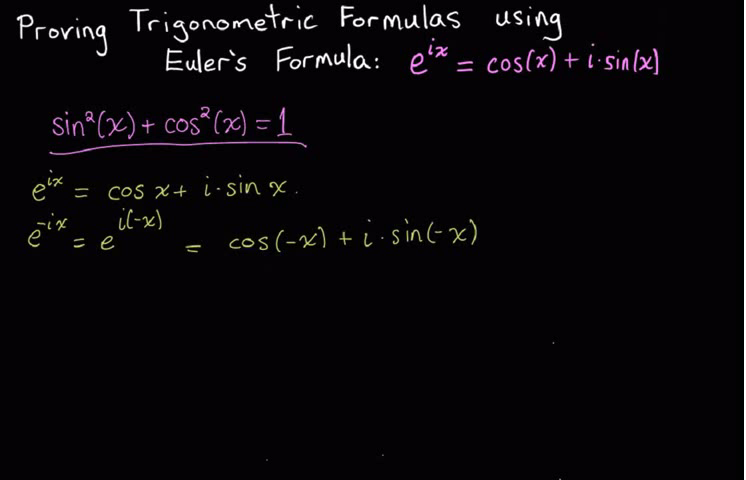 Proving Trigonometric Formulas using
Euler's Formula: e^{ix} = cos(x) + i·sin(x)
sin²(x) + cos²(x) = 1
e^{ix} = cos x + i·sin x.
e^{-ix} = e^{i(-x)} = cos(-x) + i·sin(-x)